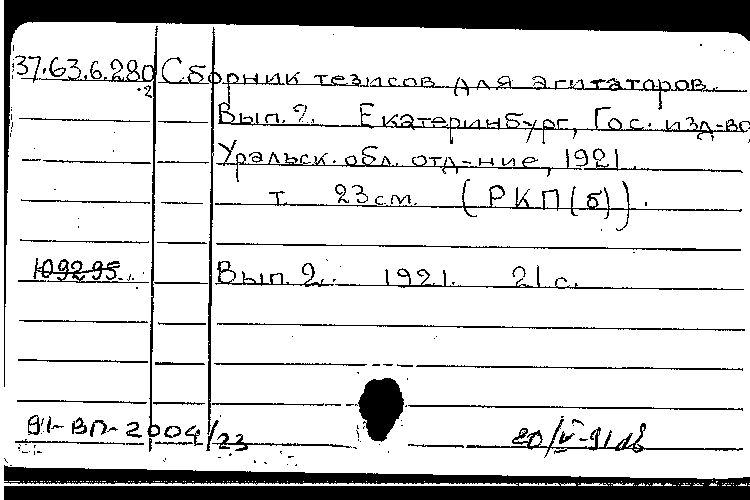 37.63.6.280 Сборник тезисов для агитаторов.
2
Вып. 2. Екатеринбург, Гос. изд-во,
Уральск. обл. отд-ние, 1921.
т. 23см. (РКП(б)).
109295. Вып. 2. 1921. 21 с.
91-ВП-2004/23 20/V-91